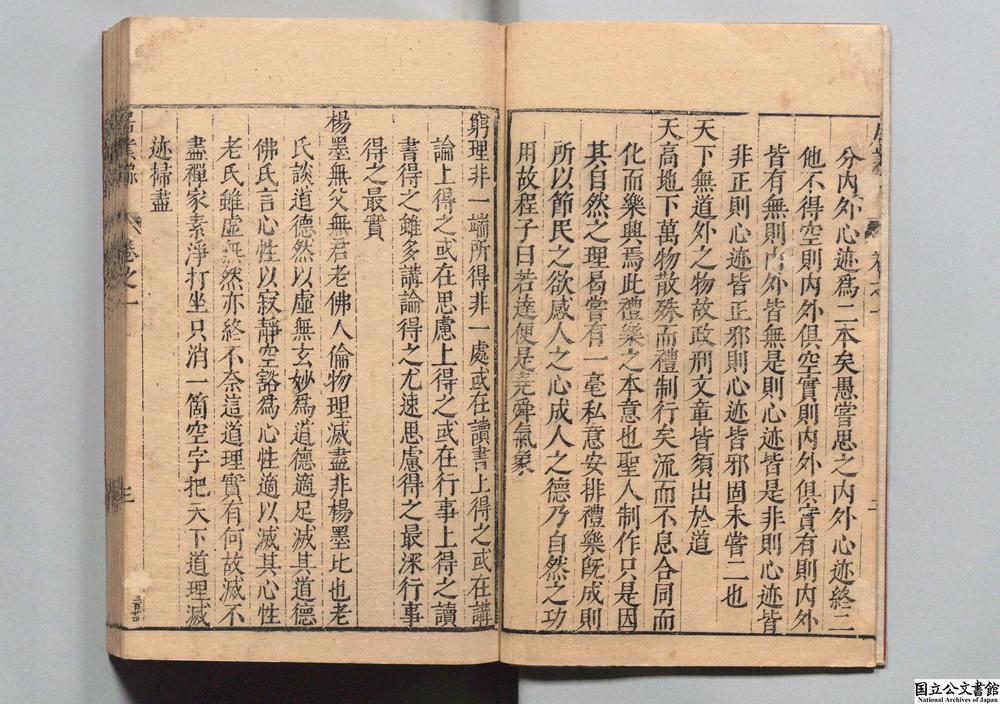 分內外心迹為二本矣愚嘗思之內外心迹終二
他不得空則內外俱空實則內外俱實有則內外
皆有無則內外皆無是則心迹皆是非則心迹皆
非正則心迹皆正邪則心迹皆邪固未嘗二也
天下無道外之物故政刑文章皆須出於道
天高地下萬物散殊而禮制行矣流而不息合同而
化而樂興焉此禮樂之本意也聖人制作只是因
其自然之理曷嘗有一毫私意安排禮樂既成則
所以節民之欲感人之心成人之德乃自然之功
用故程子曰若達便是堯舜氣象
窮理非一端所得非一處或在讀書上得之或在講
論上得之或在思慮上得之或在行事上得之讀
書得之雖多講論得之尤速思慮得之最深行事
得之最實
楊墨無父無君老佛人倫物理滅盡非楊墨比也老
氏談道德然以虛無玄妙為道德適足滅其道德
佛氏言心性以寂靜空豁為心性適以滅其心性
老氏雖虛無然亦終不奈這道理實有何故滅不
盡禪家素淨打坐只消一箇空字把天下道理滅
迹掃盡
居業錄 卷之一 三
国立公文書館
National Archives of Japan